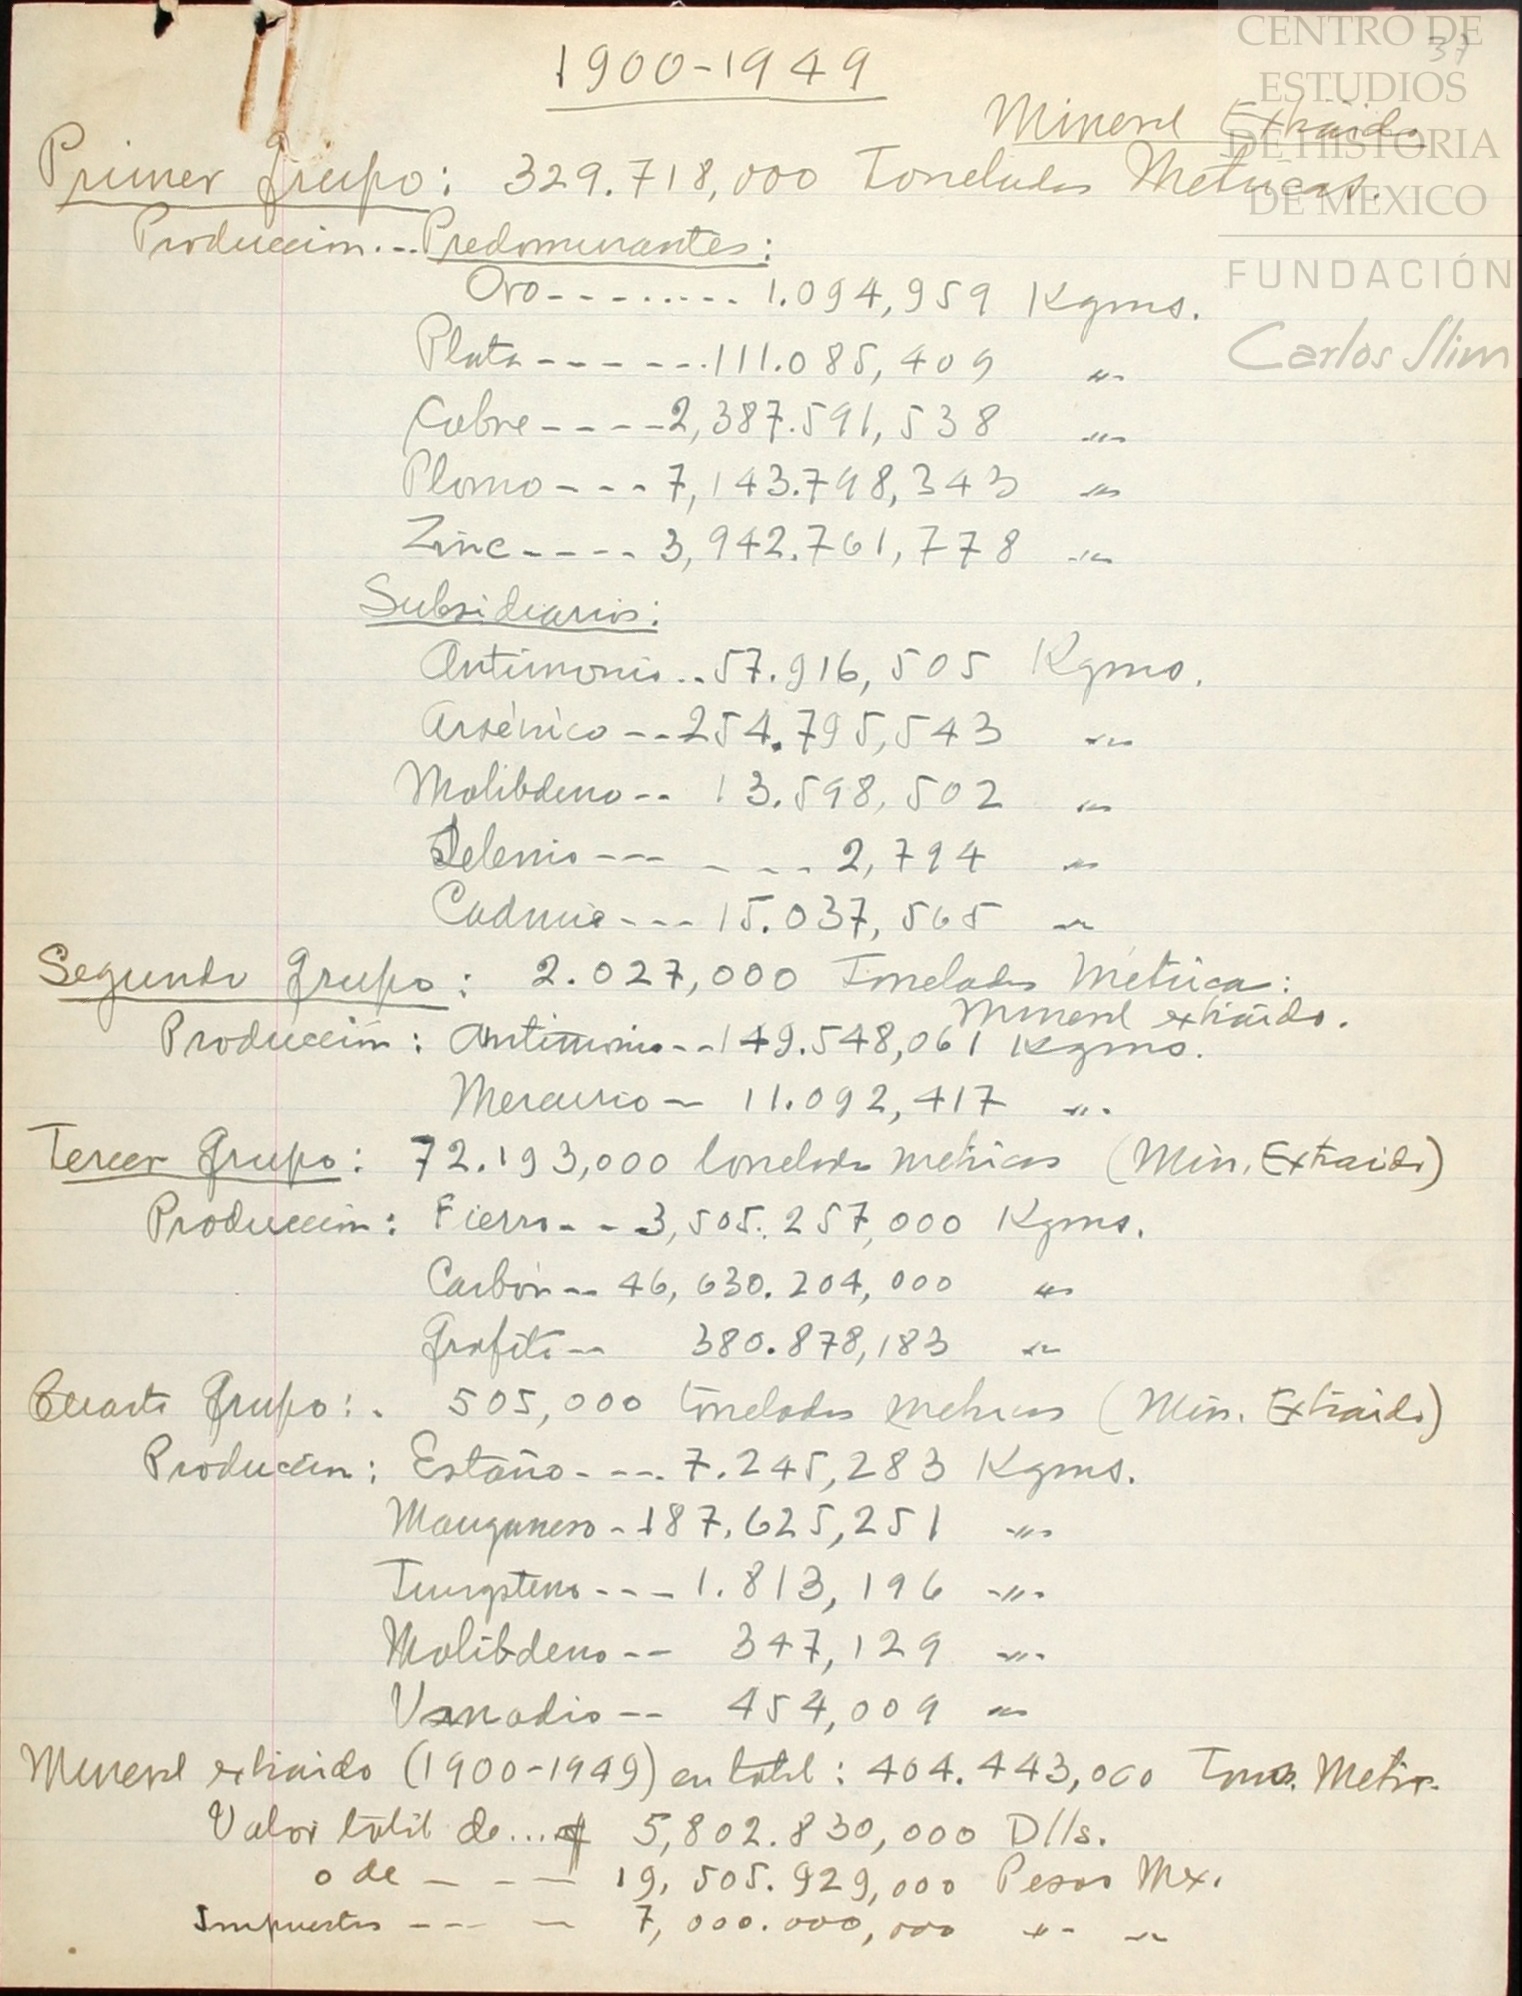 CENTRO DE
ESTUDIOS
DE HISTORIA
DE MEXICO
FUNDACIÓN
Carlos Slim
37
1900-1949
Mineral Extraido
Primer Grupo: 329.718,000 Toneladas Métricas.
Producción.--Predominantes:
Oro--------- 1.094,959 Kgms.
Plata------.111.085,409 "
Cobre----2,387.591,538 "
Plomo---7,143.798,343 "
Zinc---- 3,942.761,778 "
Subsidiarios:
Antimonio..57.916,505 Kgms.
Arsénico--254.795,543 "
Molibdeno-- 13.598,502 "
Selenio--- ---- 2,794 "
Cadmio--- 15.037,565 "
Segundo Grupo: 2.027,000 Toneladas Métrica:
Mineral extraído.
Producción: Antimonio--149.548,061 Kgms.
Mercurio- 11.092,417 "
Tercer Grupo: 72.193,000 toneladas metricas (Min. Extraido)
Producción: Fierro--3,505.257,000 Kgms.
Carbón-- 46,630.204,000 "
Grafito-- 380.878,183 "
Cuarto Grupo:. 505,000 toneladas metricas (Min. Extraido)
Producción: Estaño---- 7.245,283 Kgms.
Manganeso-187.625,251 "
Tungsteno---1.813,196 -"-
Molibdeno-- 347,129 -"-
Vanadio-- 454,009 "
Mineral extraido (1900-1949) en total: 404.443,000 Tons. Metrs.
Valor total de...$ 5,802.830,000 Dlls.
o de - - - 19,505.929,000 Pesos Mx.
Impuestos --- - 7,000.000,000 " "